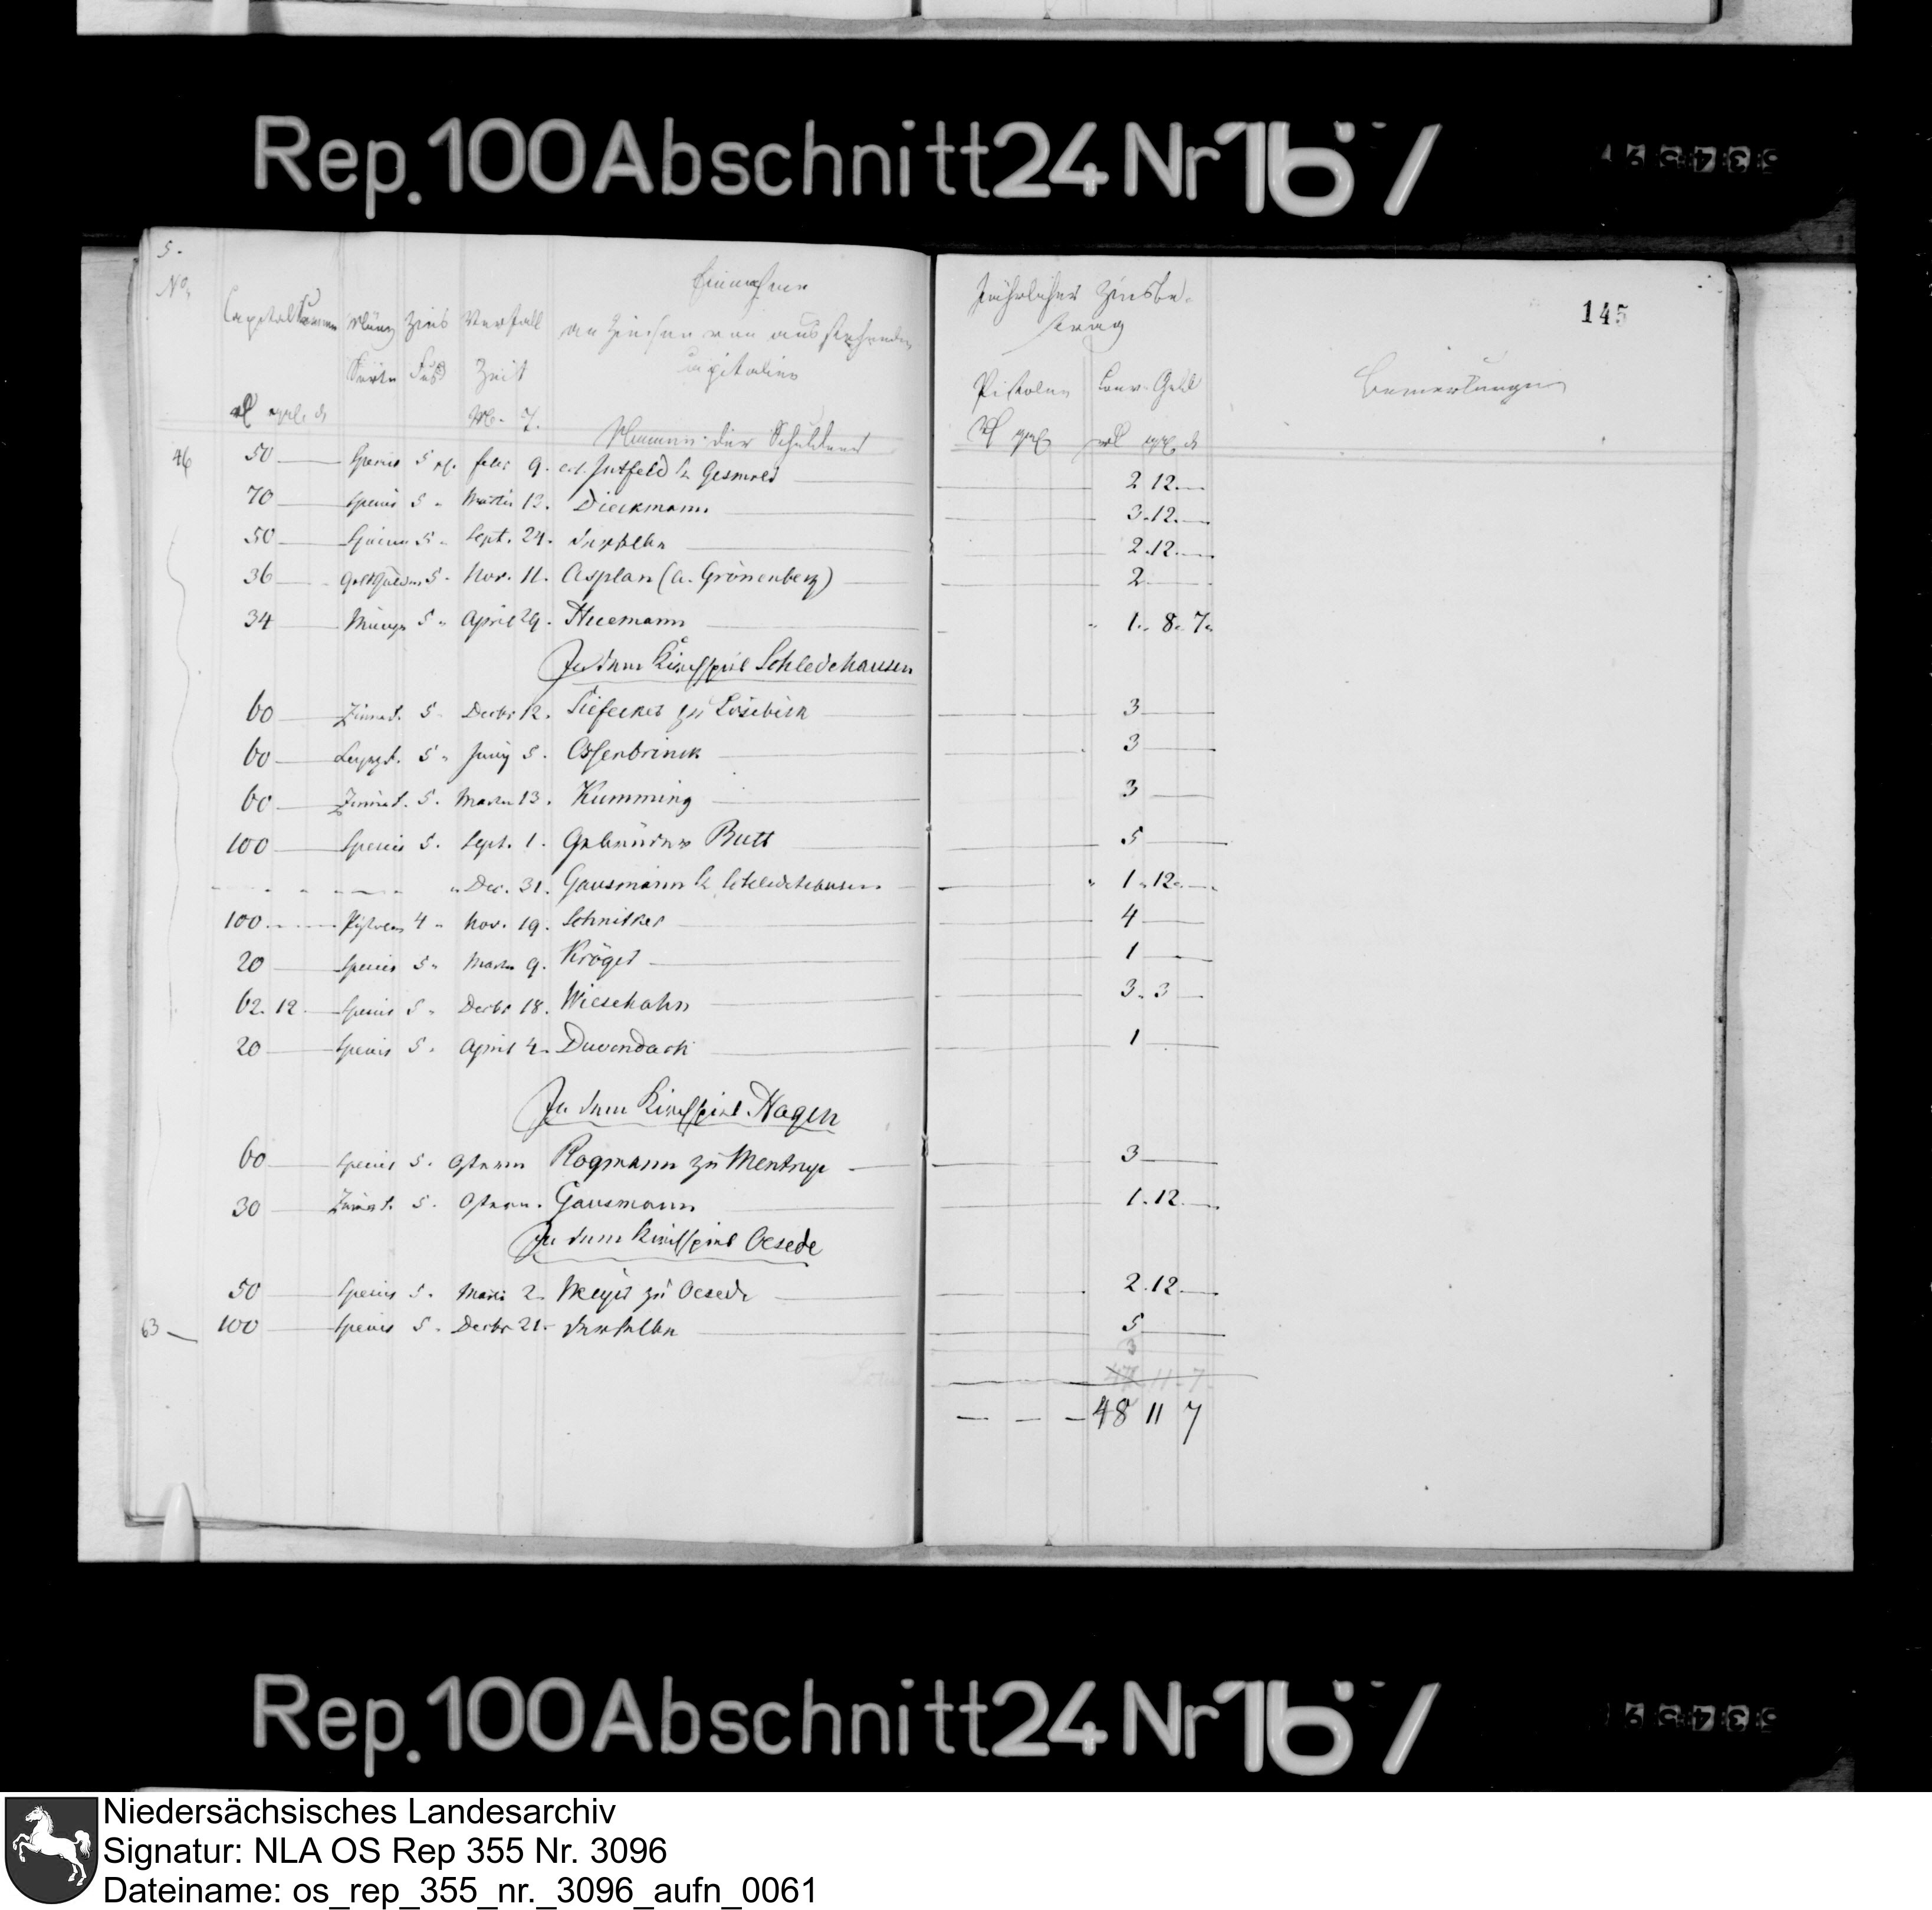 Rep. 100 Abschnitt 24 Nr 16
5.
No.
Einnahme
an Zinsen von ausstehenden
Capitalien
Capitalsumme Münz Zins Verfall
Sorte Fuß Zeit
Namen der Schuldner
Jährlicher Zinsbe-
trag
Pistolen Conv. Geld
Bemerkungen
145
46 50 Species 5 febr 9. Gesmold 2 12.
70 Species 5 " Martii 13. Dieckmann 3. 12.
50 Species 5 " Sept. 24. derselbe 2. 12.
36 Goldgulden 5 " Nov. 11. Asplan (a. Grönenberg) 2
34 Münze 5 " April 29. Huemann 1. 8. 7.
In dem Kirchspiel Schledehausen
60 5 " Decbr 12. Tiefecker zu 3
60 5 " Juny 5. Ossenbrinck 3
60 5. Martii 13. Kumming 3
100 Species 5. Sept. 1. Gebrüder Butt 5
" Dec. 31. Gausmann Schledehausen 1. 12.
100 Pistolen 4 " Nov. 19. Schnitker 4
20 Species 5 " Martii 9. Kröger 1
62. 12 Species 5 " Decbr 18. Wiesehahn 3. 3
20 Species 5 " April 4. Duvendack 1
In dem Kirchspiel Hagen
60 Species 5. Ostern Rogmann zu Mentrup 3
30 5. Ostern. Gausmann 1. 12.
In dem Kirchspiel Oesede
50 Species 5. 2. Meyer zu Oesede 2. 12
63 100 Species 5. Decbr 21. derselbe 5
3
47 11 7
48 11 7
Rep. 100 Abschnitt 24 Nr 16
Niedersächsisches Landesarchiv
Signatur: NLA OS Rep 355 Nr. 3096
Dateiname: os_rep_355_nr._3096_aufn_0061